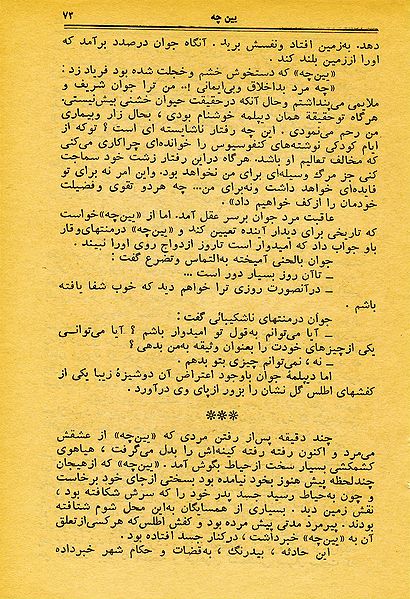 یین چه
۷۳
دهد. به‌زمین افتاد ونفسش برید . آنگاه جوان درصدد برآمد که
اورا اززمین بلند کند .
«یین‌چه» که دستخوش خشم وخجلت شده بود فریاد زد :
«چه مرد بداخلاق وبی‌ایمانی !.. من ترا جوان شریف و
ملایمی می‌پنداشتم وحال آنکه درحقیقت حیوان خشنی بیش‌نیستی.
هرگاه توحقیقة همان دیپلمه خوشنام بودی ، بحال زار وبیماری
من رحم می‌نمودی . این چه رفتار ناشایسته ای است ؟ توکه از
ایام کودکی نوشته‌های کنفوسیوس را خوانده‌ای چراکاری می‌کنی
که مخالف تعالیم او باشد. هرگاه دراین رفتار زشت خود سماجت
کنی جز مرگ وسیله‌ای برای من نخواهد بود. واین امر نه برای تو
فایده‌ای خواهد داشت ونه‌برای من... چه هردو تقوی وفضیلت
خودمان را ازکف خواهیم داد» .
عاقبت مرد جوان برسر عقل آمد. اما از «یین‌چه»خواست
که تاریخی برای دیدار آینده تعیین کند و «یین‌چه» درمنتهای‌وقار
باو جواب داد که امیدوار است تاروز ازدواج روی اورا نبیند .
جوان بالحنی آمیخته به‌التماس وتضرع گفت :
ـ تاآن روز بسیار دور است ...
ـ درآنصورت روزی ترا خواهم دید که خوب شفا یافته
باشم .
جوان درمنتهای ناشکیبائی گفت :
ـ آیا می‌توانم به‌قول تو امیدوار باشم ؟ آیا می‌توانــی
یکی ازچیزهای خودت را بعنوان وثیقه به‌من بدهی ؟
ـ نه ، نمی‌توانم چیزی بتو بدهم .
اما دیپلمهٔ جوان باوجود اعتراض آن دوشیزهٔ زیبا یکی از
کفشهای اطلس گل نشان را بزور ازپای وی درآورد .
***
چند دقیقه پس‌از رفتن مردی که «یین‌چه» از عشقش
می‌مرد و اکنون رفته رفته کینه‌اش را بدل می‌گرفت ، هیاهوی
کشمکشی بسیار سخت ازحیاط بگوش آمد . «یین‌چه» که ازهیجان
چندلحظه پیش هنوز بخود نیامده بود بسختی ازجای خود برخاست
و چون به‌حیاط رسید جسد پدر خود را که سرش شکافته بود ،
نقش زمین دید . بسیاری از همسایگان به‌این محل شوم شتافته
بودند . پیرمرد مدتی پیش مرده بود و کفش اطلس‌که هرکسی‌ازتعلق
آن به «یین‌چه» خبرداشت ، درکنار جسد افتاده بود .
این حادثه ، بیدرنگ ، به‌قضات و حکام شهر خبرداده